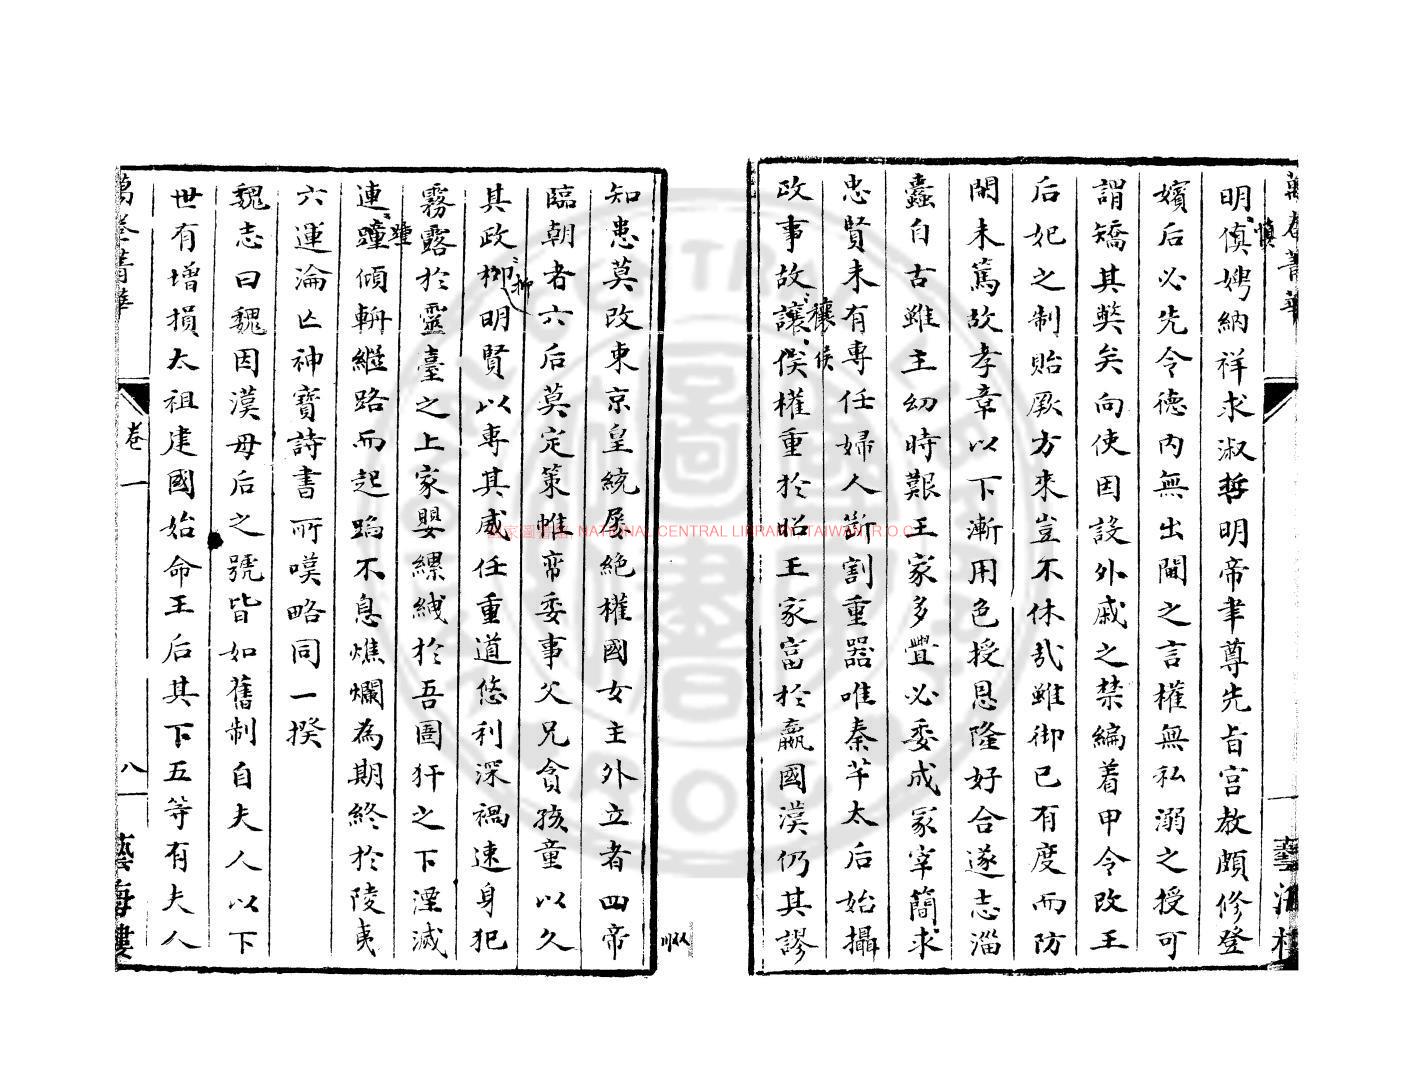 萬卷菁華
藝海樓
明慎娉納祥求淑哲明帝聿尊先旨宮教頗修登
慎
嬪后必先令德內無出閫之言權無私溺之授可
謂矯其獘矣向使因設外戚之禁編着甲令改王
后妃之制貽厥方來豈不休哉雖御已有度而防
閑未篤故孝章以下漸用色授恩隆好合遂志淄
蠹自古雖主幼時艱王家多釁必委成冢宰簡求
忠賢未有專任婦人斷割重器唯秦芊太后始攝
穰侯
政事故讓侯權重於昭王家富於嬴國漢仍其謬
知患莫改東京皇統屢絕權國女主外立者四帝
臨朝者六后莫定策帷帟委事父兄貪孩童以久
抑
其政柳明賢以專其威任重道悠利深禍速身犯
霧露於靈臺之上家嬰縲絏於圄犴之下湮滅
踵
連蹱傾輈繼路而起蹈不息燋爛為期終於陵夷
六運淪亡神寶詩書所嘆略同一揆
魏志曰魏因漢母后之號皆如舊制自夫人以下
世有增損太祖建國始命王后其下五等有夫人
萬卷菁華
卷一
八
藝海樓
國家圖書館 NATIONAL CENTRAL LIBRARY, TAIWAN, R.O.C